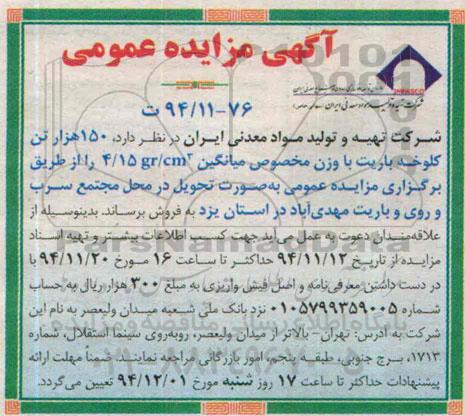 آگهی مزایده عمومی
IMPASCO
شرکت تهیه و تولید مواد معدنی ایران
۹۴/۱۱-۷۶ ت
شرکت تهیه و تولید مواد معدنی ایران در نظر دارد، ۱۵۰هزار تن
کلوخه باریت با وزن مخصوص میانگین ۴/۱۵ gr/cm۳ را از طریق
برگزاری مزایده عمومی به‌صورت تحویل در محل مجتمع سرب
و روی و باریت مهدی‌آباد در استان یزد به فروش برساند. بدینوسیله از
علاقه‌مندان دعوت به عمل می‌آید جهت کسب اطلاعات بیشتر و تهیه اسناد
مزایده از تاریخ ۹۴/۱۱/۱۲ حداکثر تا ساعت ۱۶ مورخ ۹۴/۱۱/۲۰ با
در دست داشتن معرفی‌نامه و اصل فیش واریزی به مبلغ ۳۰۰ هزار ریال به حساب
شماره ۰۱۰۵۷۹۹۳۵۹۰۰۵ نزد بانک ملی شعبه میدان ولیعصر به نام این
شرکت به آدرس: تهران- بالاتر از میدان ولیعصر، روبه‌روی سینما استقلال، شماره
۱۷۱۳، برج جنوبی، طبقه پنجم، امور بازرگانی مراجعه نمایند. ضمنا مهلت ارائه
پیشنهادات حداکثر تا ساعت ۱۷ روز شنبه مورخ ۹۴/۱۲/۰۱ تعیین می‌گردد.